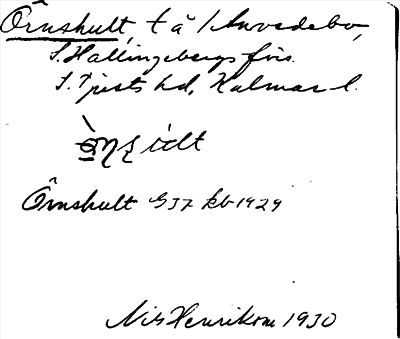 Örnshult, t å / Anvedebo,
S. Hallingebergs förs.
S. Tjusts hd, Kalmar l.
Örnshult GJ7 kb 1929
Nils Henrikson 1930